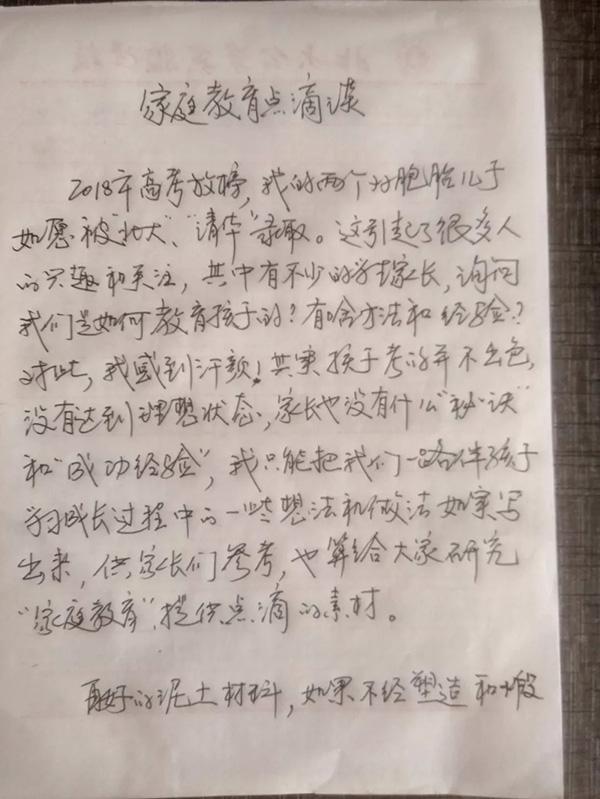 家庭教育点滴谈
2018年高考放榜，我的两个双胞胎儿子
如愿被“北大”、“清华”录取。这引起了很多人
的兴趣和关注，其中有不少的学生家长，询问
我们是如何教育孩子的？有啥方法和经验？
对此，我感到汗颜！其实孩子考的并不出色，
没有达到理想状态，家长也没有什么“秘诀”
和“成功经验”，我只能把我们一路伴孩子
学习成长过程中的一些想法和做法如实写
出来，供家长们参考，也算给大家研究
“家庭教育”，提供点滴的素材。
再好的泥土材料，如果不经塑造和煅